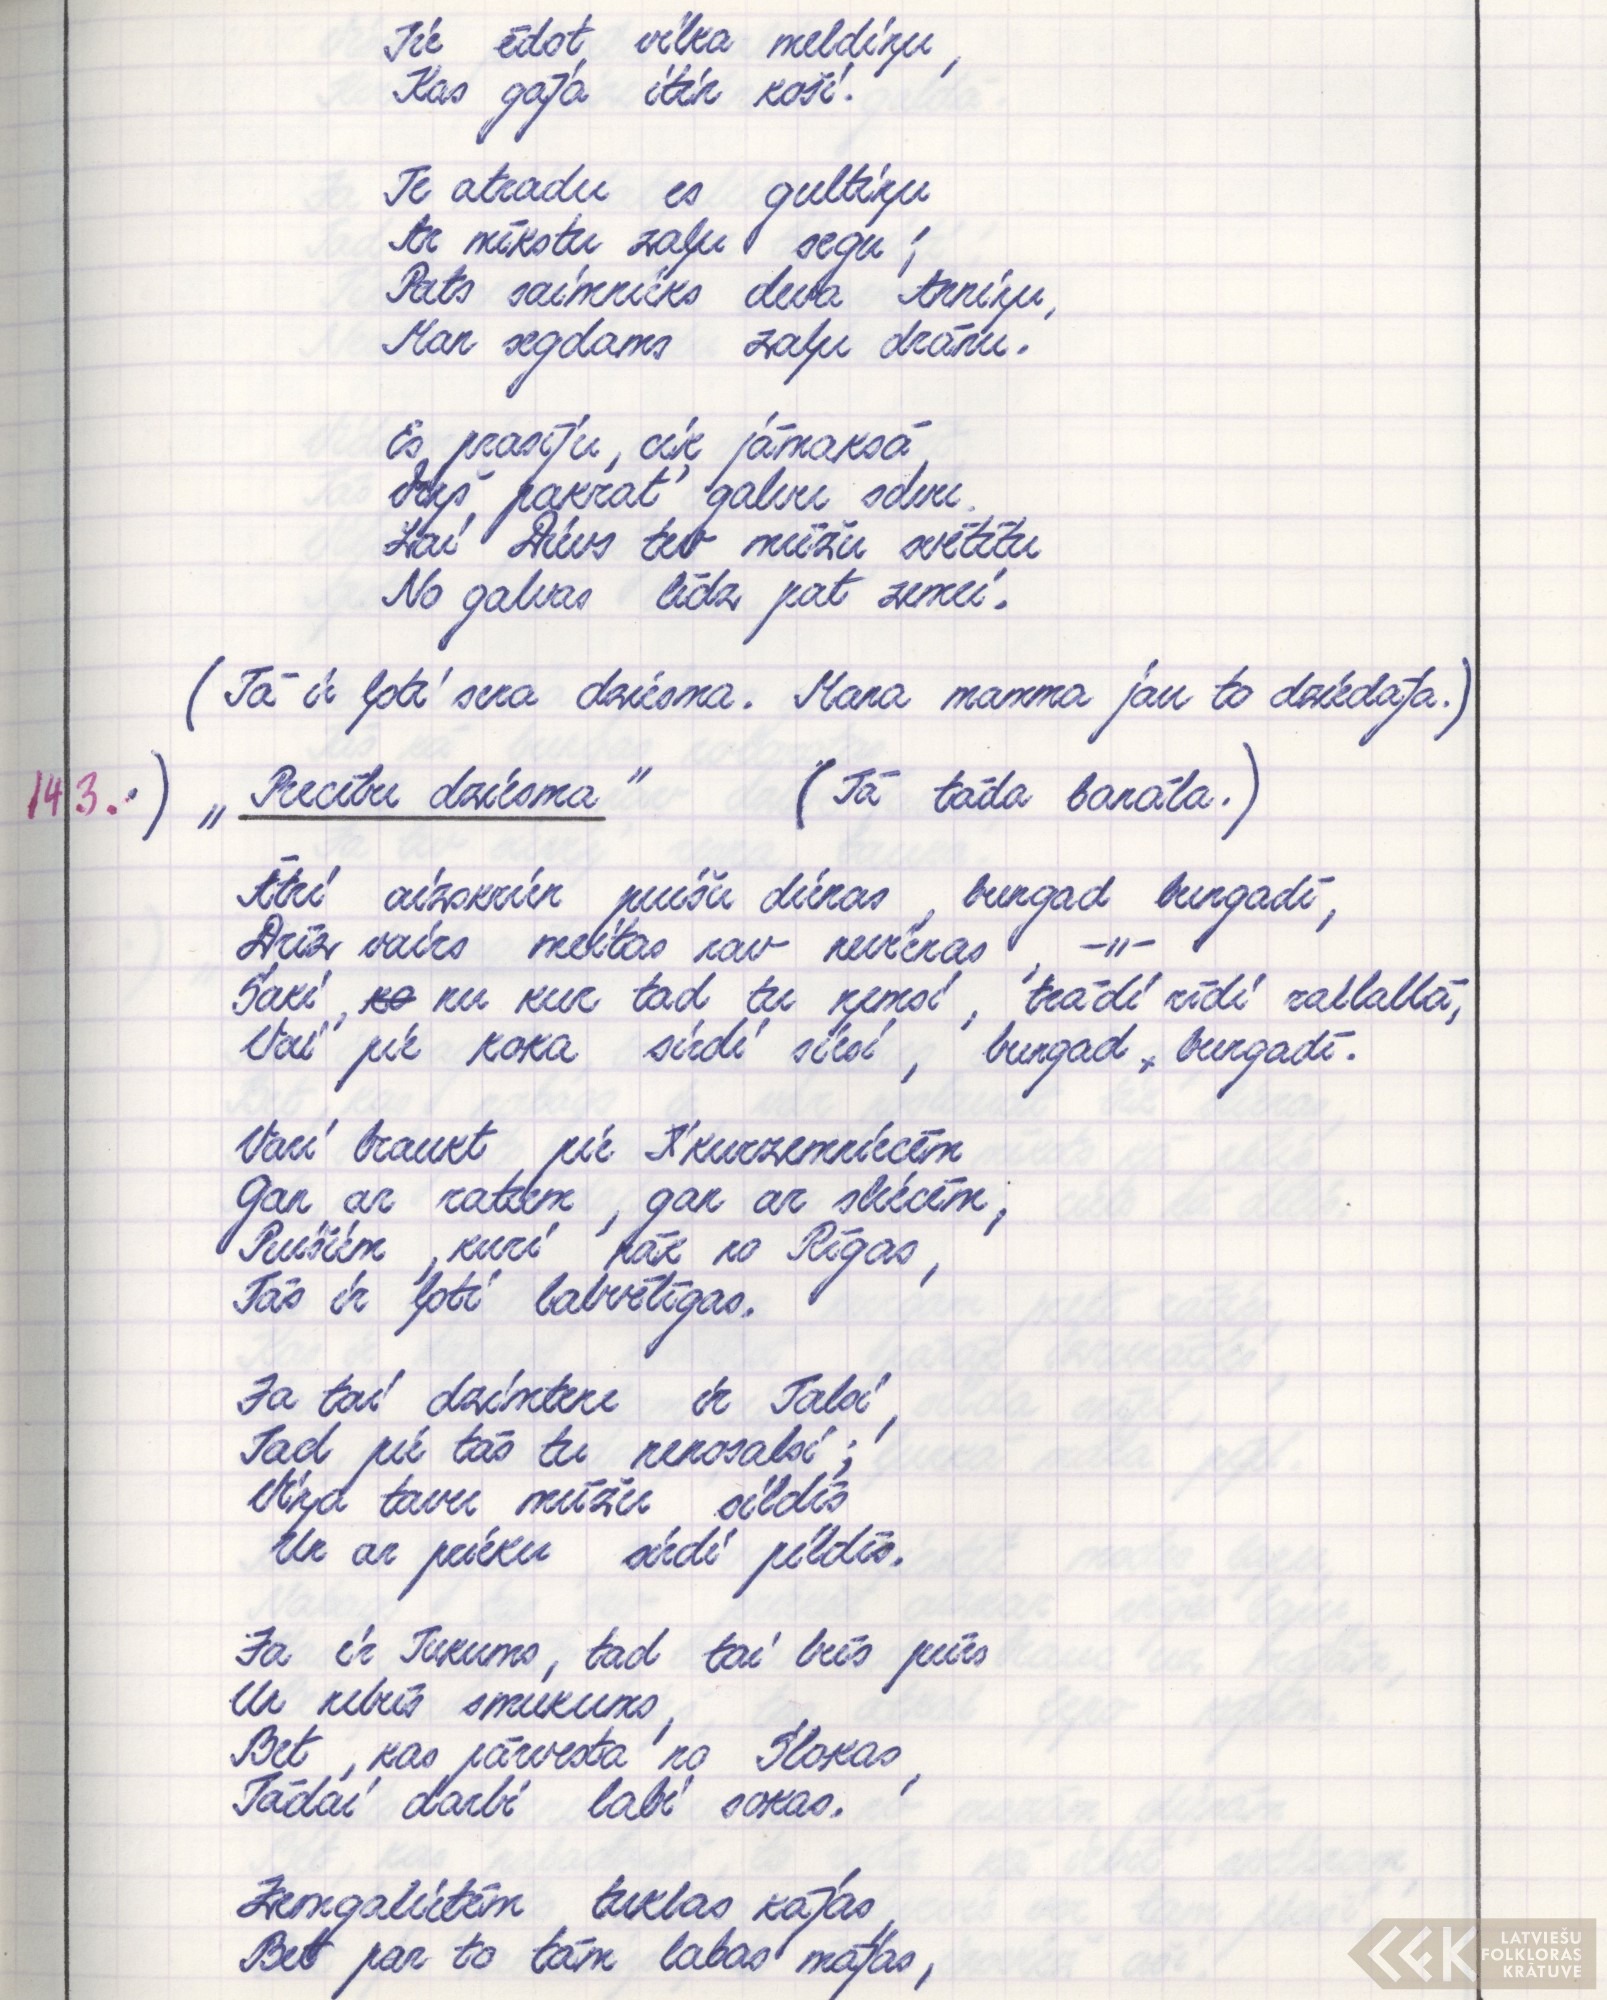 Tie ēdot vilka meldiņu,
Kas gāja itin koši.
Te atradu es gultiņu
Ar mīkstu zaļu segu;
Pats saimnieks deva Anniņu,
Man segdams zaļu drānu.
Es prasīju, cik jāmaksā,
Viņš pakrat' galvu sevu.
Lai Dievs tev mūžu svētītu
No galvas līdz pat zemei.
(Tā ir ļoti sena dziesma. Mana mamma jau to dziedāja.)
143.) „Precību dziesma" (Tā tāda banāla.)
Ātri aizskrien puišu dienas, bungad bungadī,
Drīz vairs meitas nav nevienas, -"-
Saki, ko nu kur tad tu ņemsi, trādi rīdi rallallā,
Vai pie koka sirdi siesi, bungad, bungadī.
Vari braukt pie kurzemniecēm
Gan ar ratiem, gan ar sliecēm;
Puišiem, kuri nāk no Rīgas,
Tās ir ļoti labvēlīgas.
Ja tai dzimtene ir Talsi,
Tad pie tās tu nenosalsi;
Viņa tavu mūžu sildīs
Un ar prieku sirdi pildīs.
Ja ir Tukums, tad tai būs pūrs
Un nebūs smukums,
Bet, kas pārvesta no Slokas,
Tādai darbi labi sokas.
Zemgalietēm tuklas kājas,
Bet par to tām labas mājas,
LATVIEŠU
FOLKLORAS
KRĀTUVE